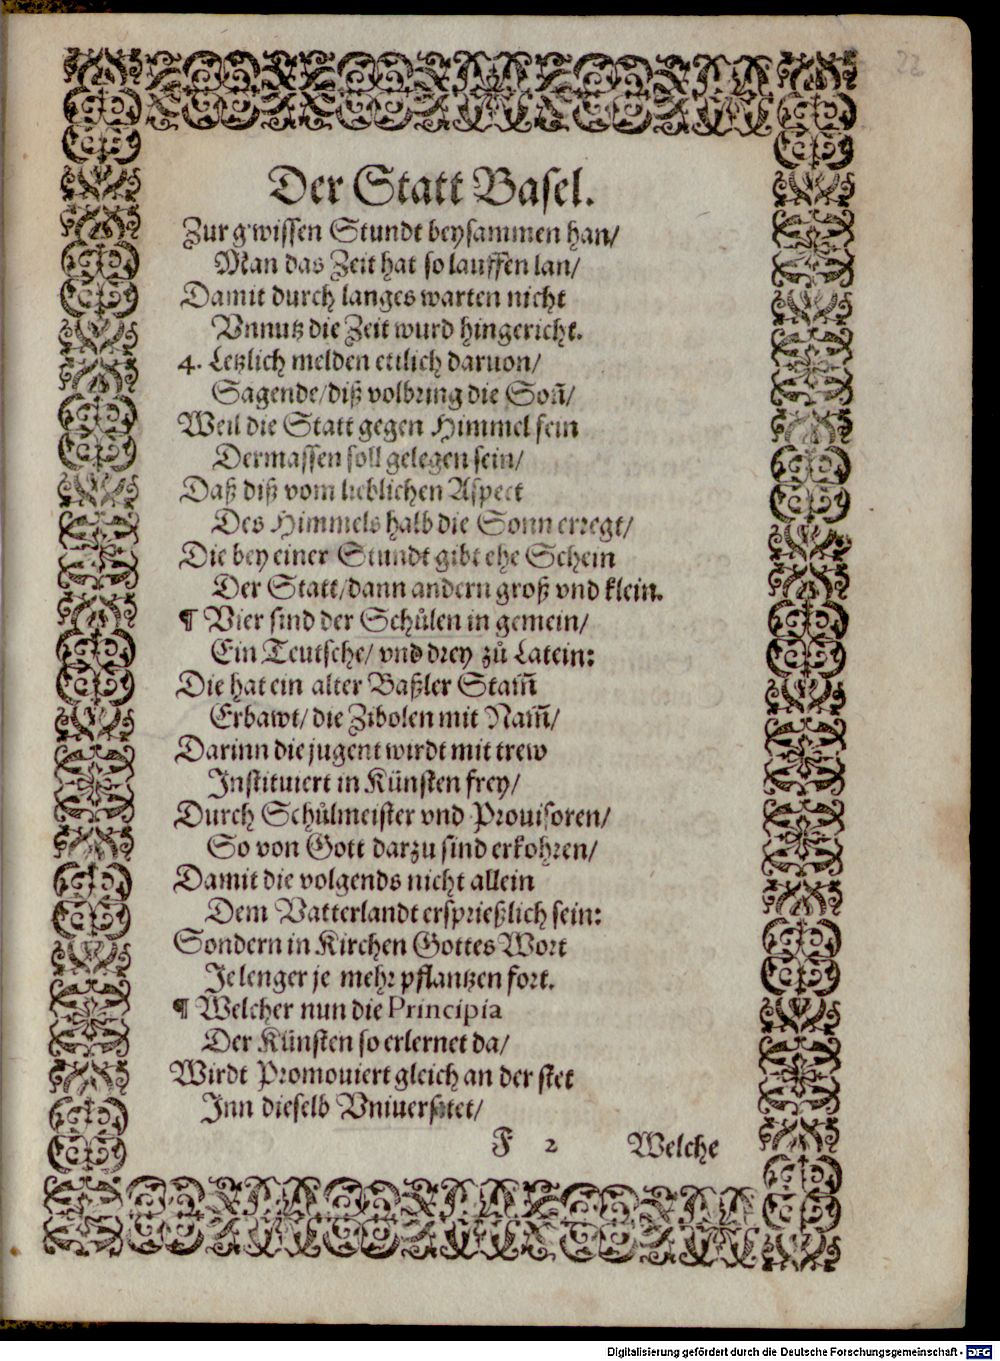 22
Der Statt Basel.
Zur g'wissen Stundt beysammen han/
Man das Zeit hat so lauffen lan/
Damit durch langes warten nicht
Vnnutz die Zeit wurd hingericht.
4. Letzlich melden ettlich daruon/
Sagende/diß volbring die Soñ/
Weil die Statt gegen Himmel fein
Dermassen soll gelegen sein/
Daß diß vom lieblichen Aspect
Des Himmels halb die Sonn erregt/
Die bey einer Stundt gibt ehe Schein
Der Statt/dann andern groß vnd klein.
¶ Vier sind der Schůlen in gemein/
Ein Teutsche/ vnd drey zů Latein:
Die hat ein alter Baßler Stam̃
Erbawt/ die Zibolen mit Nam̃/
Darinn die jugent wirdt mit trew
Instituiert in Künsten frey/
Durch Schůlmeister vnd Prouisoren/
So von Gott darzu sind erkohren/
Damit die volgends nicht allein
Dem Vatterlandt ersprießlich sein:
Sondern in Kirchen Gottes Wort
Je lenger je mehr pflantzen fort.
¶ Welcher nun die Principia
Der Künsten so erlernet da/
Wirdt Promouiert gleich an der stet
Inn dieselb Vniuersitet/
F 2 Welche
Digitalisierung gefördert durch die Deutsche Forschungsgemeinschaft - DFG